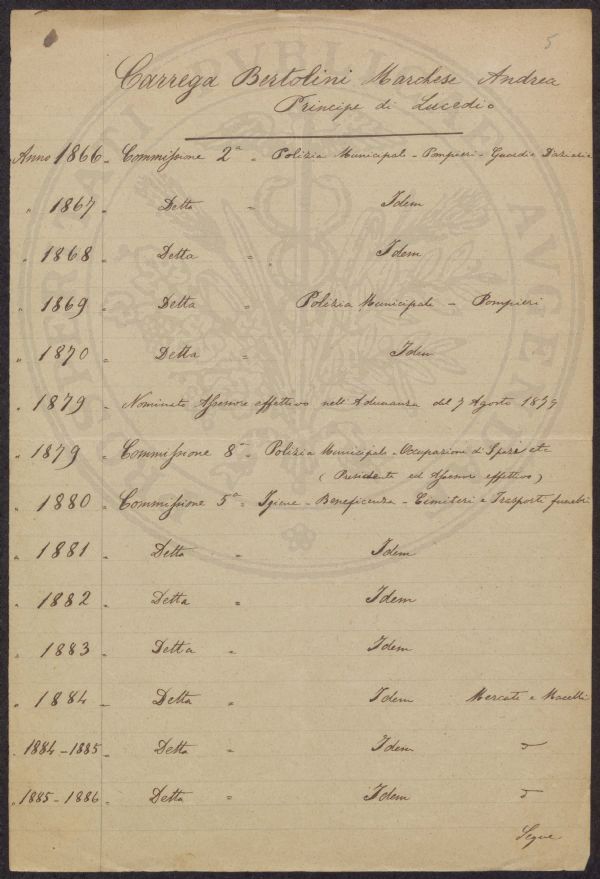 5
Carrega Bertolini Marchese Andrea
Principe di Lucedio
Anno 1866 - Commissione 2ª = Polizia Municipale - Pompieri - Guardie Daziarie
" 1867 - Detta = Idem
" 1868 - Detta = Idem
" 1869 - Detta = Polizia Municipale - Pompieri
" 1870 - Detta = Idem
" 1879 - Nominato Assessore effettivo nell'Adunanza del 7 Agosto 1879
" 1879 - Commissione 8ª - Polizia Municipale - Occupazioni di Spazi etc
(Presidente ed Assessore effettivo)
" 1880 - Commissione 5ª = Igiene - Beneficenza - Cimiteri e Trasporti funebri
" 1881 - Detta = Idem
" 1882 - Detta = Idem
" 1883 - Detta = Idem
" 1884 - Detta = Idem Mercati e Macelli
" 1884-1885 - Detta = Idem
" 1885-1886 - Detta = Idem
Segue